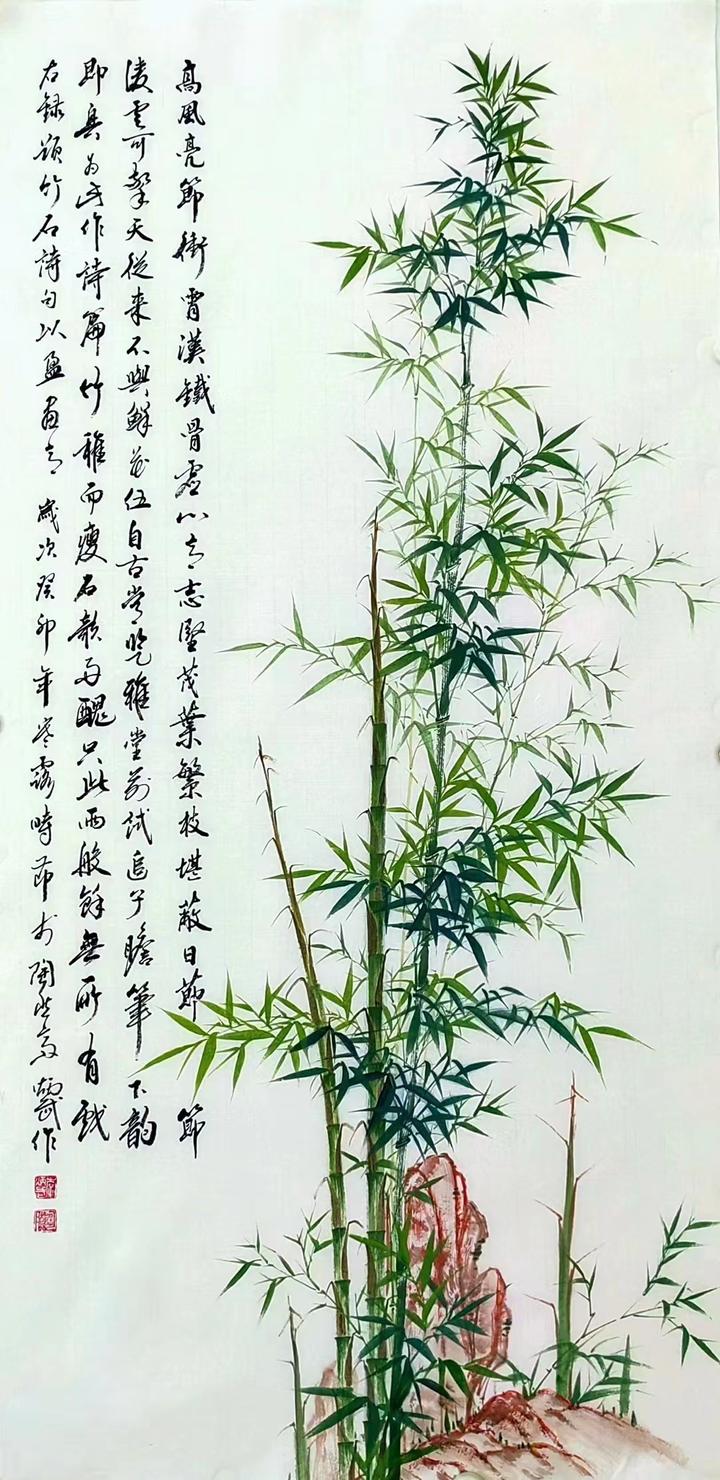 高風亮節衝霄漢鐵骨虛心志堅茂葉繁枝堪蔽日節節
凌雲可擎天從來不與鮮花伍自古常登雅堂前試追子瞻筆下韻
即興為此作詩篇竹雅而瘦石醜只此兩般餘無所有戲
右錄題竹石詩句以盈畫歲次癸卯年寒露時節於陶然齋炳武作